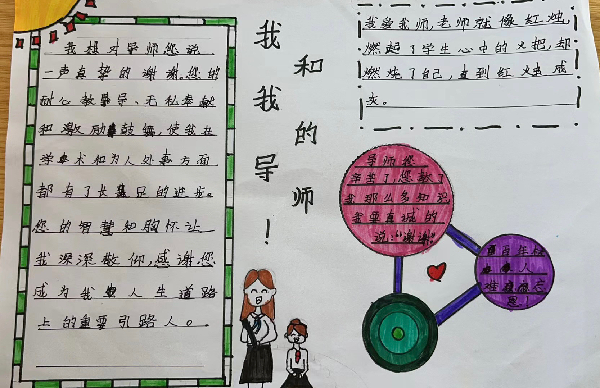 我想对导师您说
一声真挚的谢谢,您的
耐心教导、无私奉献
和激励鼓舞,使我在
学术和为人处事方面
都有了长足的进步。
您的智慧和胸怀让
我深深敬佩,感谢您
成为我人生道路
上的重要引路人。
我和我的导师!
我爱我师,老师就像红烛,
燃起了学生心中的火把,却
燃烧了自己,直到红烛成
灰。
导师您
辛苦了,您教了
我那么多知识
我要真诚的
说:“谢谢”
岁月年华
人
难忘
恩